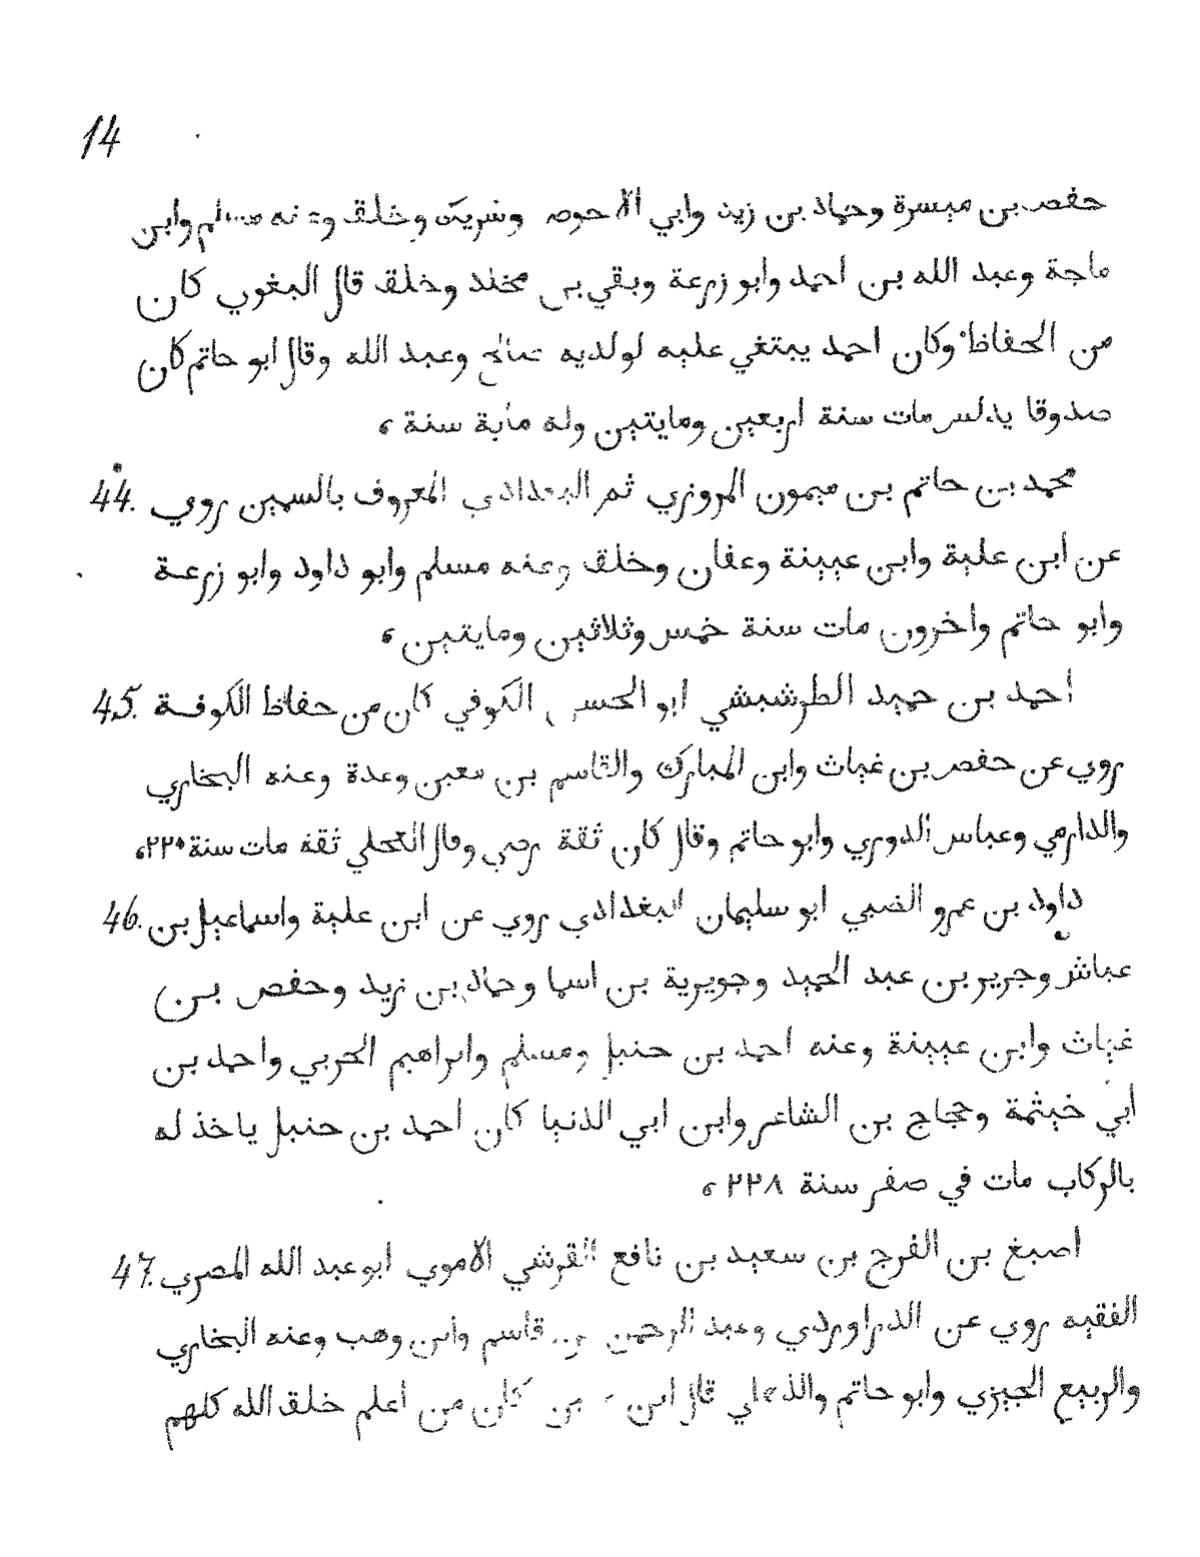 14
حفص بن ميسرة وحماد بن زيد وابي الاحوص وشريك وخلق وعنه مسلم وابن
ماجة وعبد الله بن احمد وابو زرعة وبقي بن مخلد وخلق قال البغوي كان
من الحفاظ وكان احمد ينتقي عليه لولديه صالح وعبد الله وقال ابو حاتم كان
صدوقا يدلس مات سنة اربعين ومايتين وله ماية سنة ،
44. محمد بن حاتم بن ميمون المروزي ثم البغدادي المعروف بالسمين روي
عن ابن علية وابن عيينة وعفان وخلق وعنه مسلم وابو داود وابو زرعة
وابو حاتم واخرون مات سنة خمس وثلاثين ومايتين ،
45. احمد بن حميد الطرشيشي ابو الحسن الكوفي كان من حفاظ الكوفة
روي عن حفص بن غياث وابن المبارك والقاسم بن معين وعدة وعنه البخاري
والدارمي وعباس الدوري وابو حاتم وقال كان ثقة رضي وقال العجلي ثقة مات سنة ٢٢٠ ،
46. داود بن عمرو الضبي ابو سليمان البغدادي روي عن ابن علية واسماعيل بن
عياش وجرير بن عبد الحميد وجويرية بن اسما وحماد بن زيد وحفص بن
غياث وابن عيينة وعنه احمد بن حنبل ومسلم وابراهيم الحربي واحمد بن
ابي خيثمة وحجاج بن الشاعر وابن ابي الدنيا كان احمد بن حنبل ياخذ له
بالركاب مات في صفر سنة ٢٢٨ ،
47. اصبغ بن الفرج بن سعيد بن نافع القرشي الاموي ابو عبد الله المصري
الفقيه روي عن الدراوردي وعبد الرحمن بن قاسم وابن وهب وعنه البخاري
والربيع الجيزي وابو حاتم والذهلي قال ابن معين كان من اعلم خلق الله كلهم